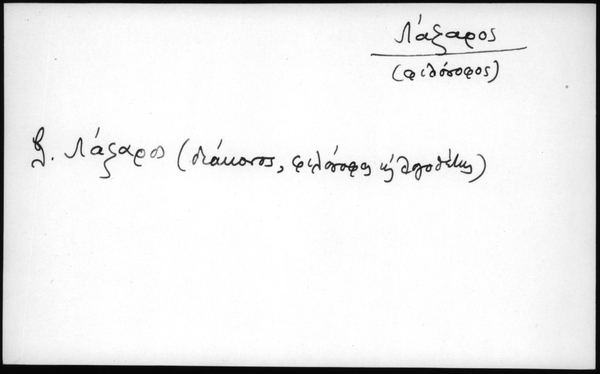 Λάζαρος
(φιλόσοφος)
βλ. Λάζαρος (διάκονος, φιλόσοφος κ̀ λογοθέτης)